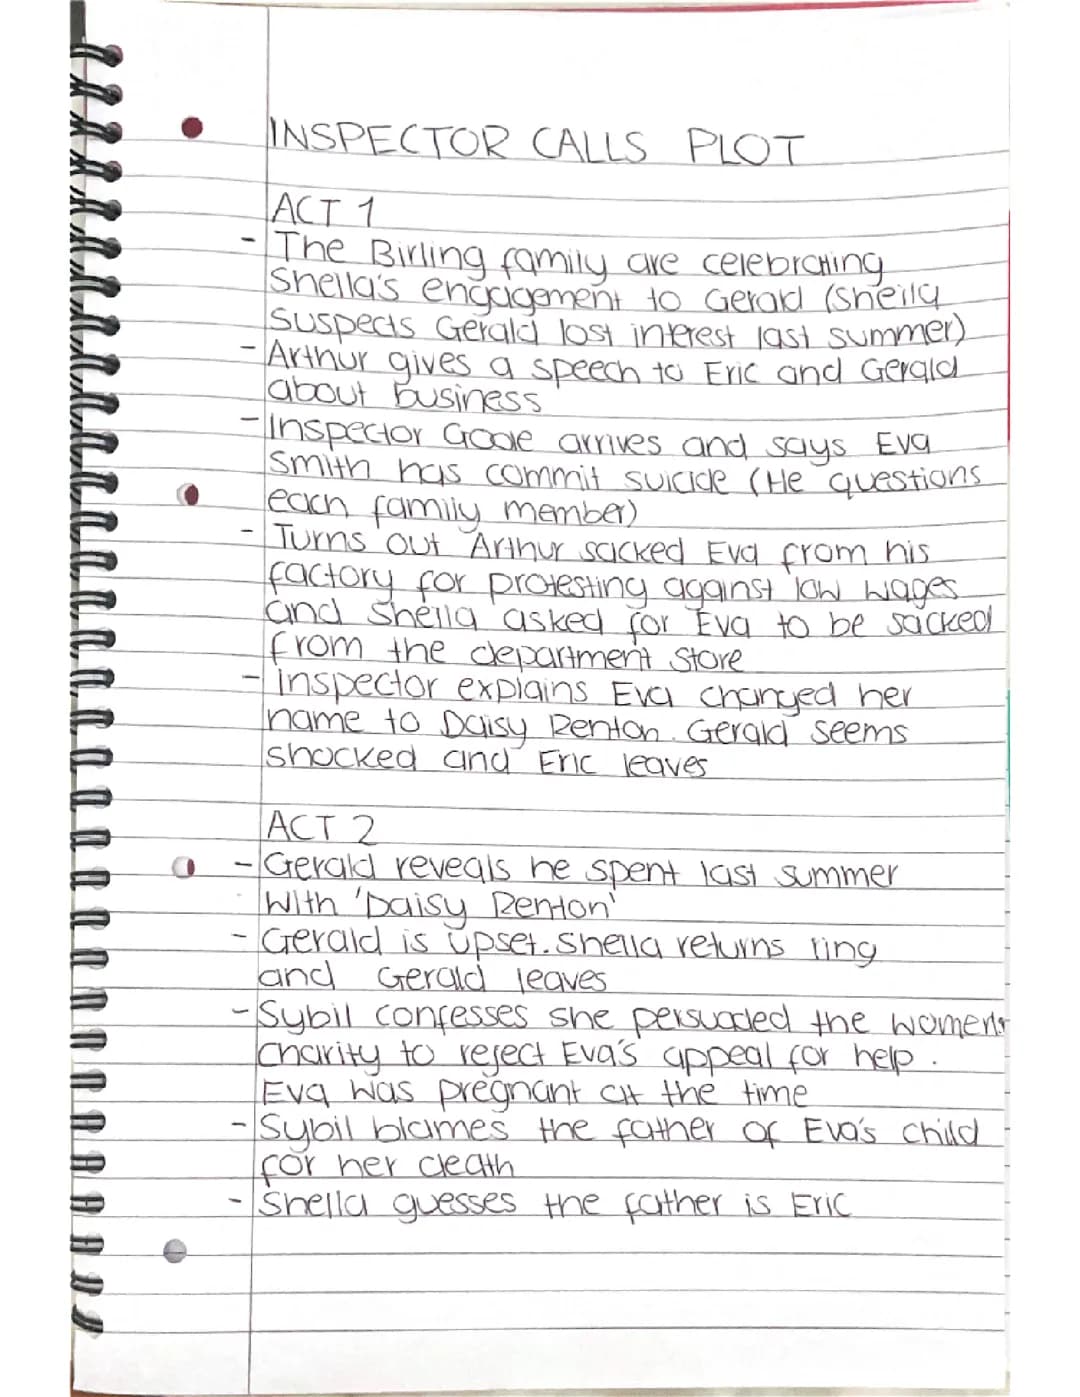 INSPECTOR CALLS PLOT
ACT 1
- The Birling family are celebrating
Sheila's engagement to Gerald (Sheila
suspects Gerald lost interest last summer)
- Arthur gives a speech to Eric and Gerald
about business
- Inspector Goole arrives and says Eva
Smith has commit suicide (He questions
each family member)
- Turns out Arthur sacked Eva from his
factory for protesting against low wages
and Sheila asked for Eva to be sacked
from the department store
- Inspector explains Eva changed her
name to Daisy Renton. Gerald seems
shocked and Eric leaves
ACT 2
- Gerald reveals he spent last summer
with 'Daisy Renton'
- Gerald is upset. Sheila returns ring
and Gerald leaves
- Sybil confesses she persuaded the womens
charity to reject Eva's appeal for help.
Eva was pregnant at the time
- Sybil blames the father of Eva's child
for her death
- Sheila guesses the father is Eric